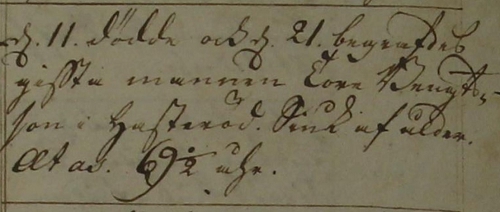 d. 11. dödde och d. 21. begrafdes
gifta mannen Tore Bengts-
son i Hasteröd. Siuk af ålder.
Ætat. 69½ åhr.